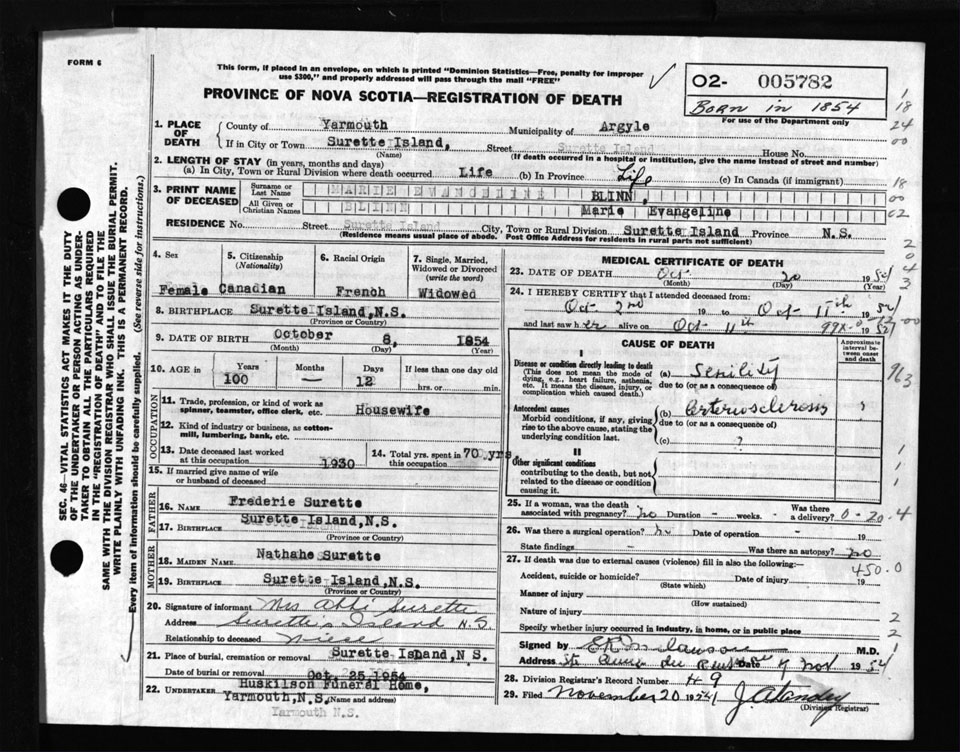 FORM 6
This form, if placed in an envelope, on which is printed "Dominion Statistics—Free, penalty for improper
use $300," and properly addressed will pass through the mail "FREE"
PROVINCE OF NOVA SCOTIA—REGISTRATION OF DEATH
O2- 005782
Born in 1854
For use of the Department only
1. PLACE OF DEATH
County of Yarmouth Municipality of Argyle
If in City or Town Surette Island, Street Surette Island House No.
(Name) (If death occurred in a hospital or institution, give the name instead of street and number)
2. LENGTH OF STAY (in years, months and days)
(a) In City, Town or Rural Division where death occurred Life (b) In Province Life (c) In Canada (if immigrant)
3. PRINT NAME OF DECEASED
Surname or Last Name MARIE EVANGELINE BLINN,
All Given or Christian Names BLINN Marie Evangeline
RESIDENCE No. Street Surette Island City, Town or Rural Division Surette Island Province N.S.
(Residence means usual place of abode. Post Office Address for residents in rural parts not sufficient)
4. Sex Female
5. Citizenship (Nationality) Canadian
6. Racial Origin French
7. Single, Married, Widowed or Divorced (write the word) Widowed
8. BIRTHPLACE Surette Island, N.S.
(Province or Country)
9. DATE OF BIRTH October 8, 1854
(Month) (Day) (Year)
10. AGE in Years 100 Months — Days 12 If less than one day old
hrs. or min.
OCCUPATION
11. Trade, profession, or kind of work as
spinner, teamster, office clerk, etc. Housewife
12. Kind of industry or business, as cotton-
mill, lumbering, bank, etc.
13. Date deceased last worked
at this occupation 1930
14. Total yrs. spent in
this occupation 70 yrs.
15. If married give name of wife
or husband of deceased
FATHER
16. NAME Frederie Surette
17. BIRTHPLACE Surette Island, N.S.
(Province or Country)
MOTHER
18. MAIDEN NAME Nathahe Surette
19. BIRTHPLACE Surette Island, N.S.
(Province or Country)
20. Signature of informant Mrs Surette
Address Surette's Island N.S.
Relationship to deceased Niese
21. Place of burial, cremation or removal Surette Island, N S.
Date of burial or removal Oct. 25, 1954
22. UNDERTAKER Huskilson Funeral Home,
Yarmouth, N.S. (Name and address)
Yarmouth N.S.
MEDICAL CERTIFICATE OF DEATH
23. DATE OF DEATH Oct. 20 1954
(Month) (Day) (Year)
24. I HEREBY CERTIFY that I attended deceased from:
Oct 2nd 19 to Oct 11th 1954
and last saw her alive on Oct 11th 1954
CAUSE OF DEATH
Approximate interval between onset and death
I
Disease or condition directly leading to death
(This does not mean the mode of
dying, e.g., heart failure, asthenia,
etc. It means the disease, injury, or
complication which caused death.)
(a) Senility
due to (or as a consequence of)
Antecedent causes
Morbid conditions, if any, giving
rise to the above cause, stating the
underlying condition last.
(b) Arteriosclerosis
due to (or as a consequence of)
(c) ?
II
Other significant conditions
contributing to the death, but not
related to the disease or condition
causing it.
25. If a woman, was the death
associated with pregnancy? no Duration - weeks. - Was there
a delivery? 0-20.4
26. Was there a surgical operation? no Date of operation -
State findings - Was there an autopsy? no
27. If death was due to external causes (violence) fill in also the following:
450.0
Accident, suicide or homicide? Date of injury 19
(State which)
Manner of injury
(How sustained)
Nature of injury
Specify whether injury occurred in industry, in home, or in public place
Signed by M.D.
Address Date Nov 1954
28. Division Registrar's Record Number # 9
29. Filed November 20 1954
(Division Registrar)
SEC. 46—VITAL STATISTICS ACT MAKES IT THE DUTY
OF THE UNDERTAKER OR PERSON ACTING AS UNDER-
TAKER TO OBTAIN ALL THE PARTICULARS REQUIRED
IN THE "REGISTRATION OF DEATH" AND TO FILE THE
SAME WITH THE DIVISION REGISTRAR WHO SHALL ISSUE THE BURIAL PERMIT.
WRITE PLAINLY WITH UNFADING INK. THIS IS A PERMANENT RECORD.
Every item of information should be carefully supplied. (See reverse side for instructions.)